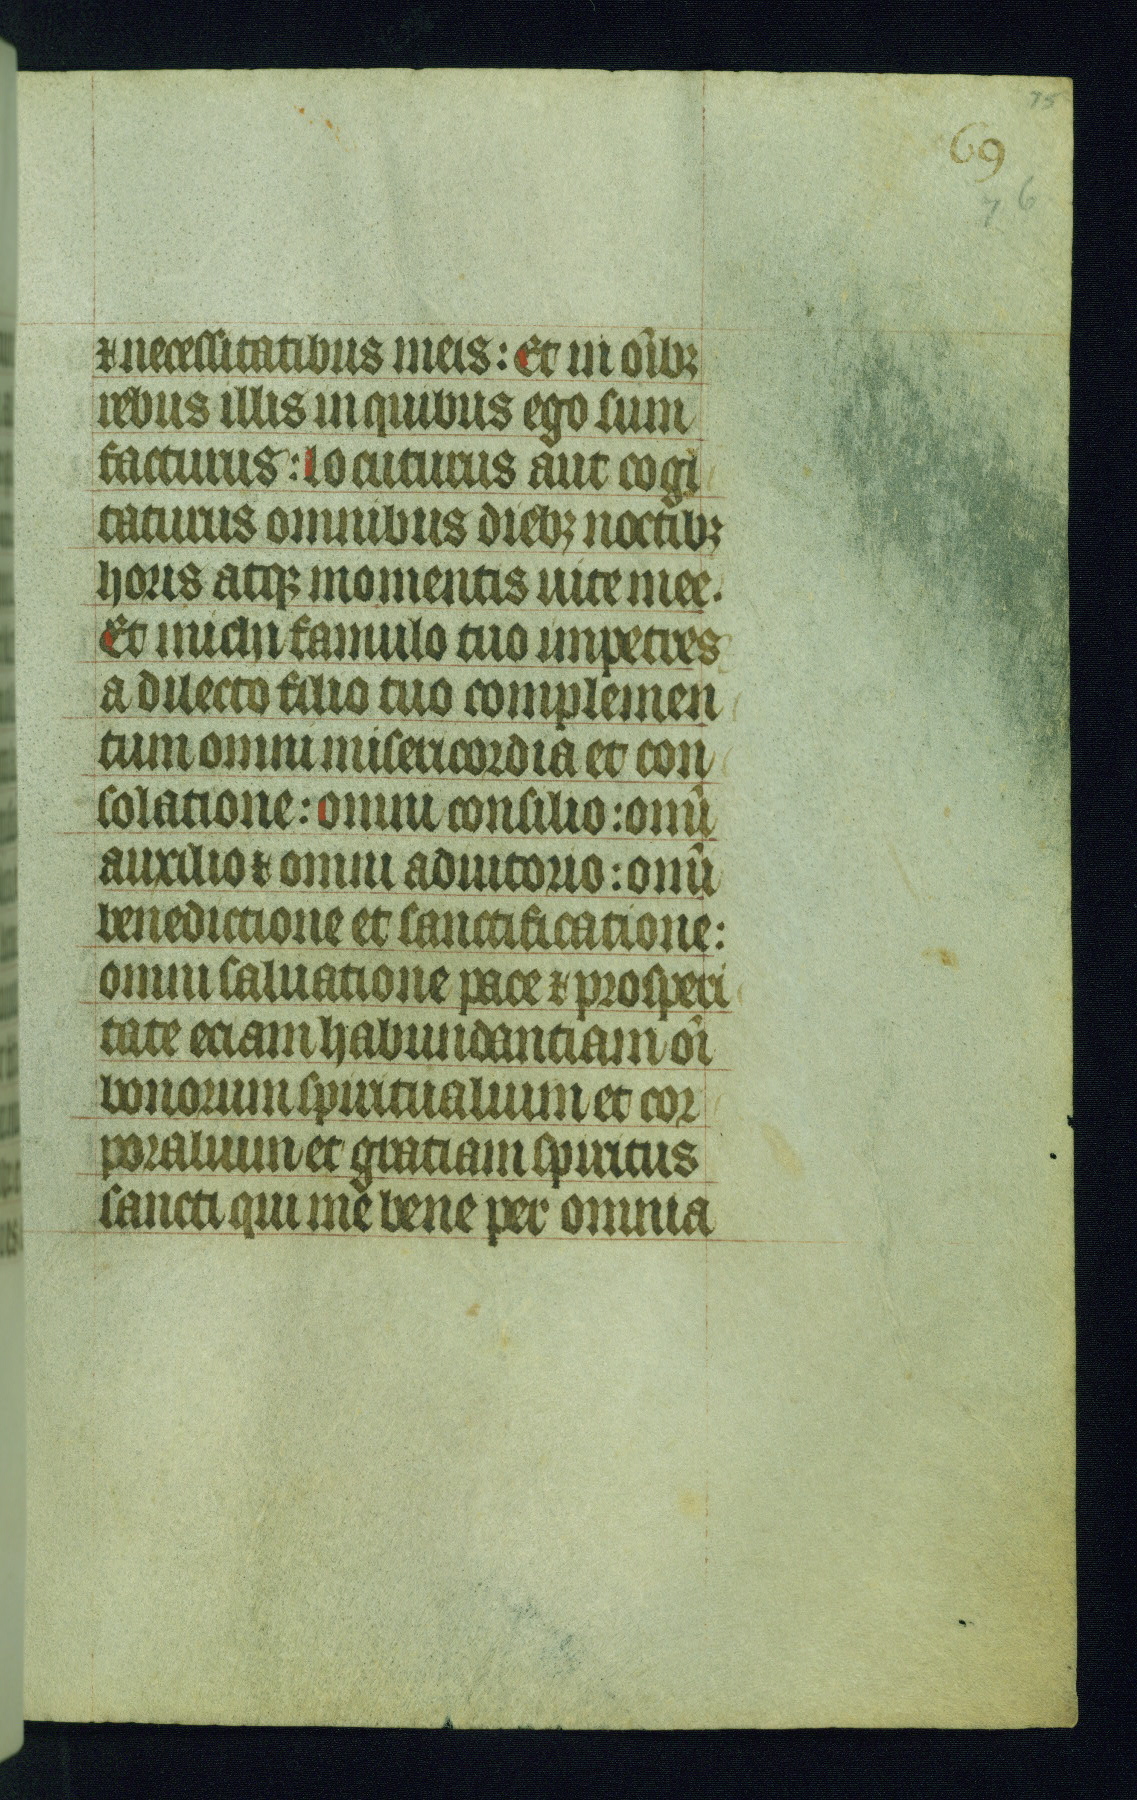 75
69
76
⁊ necessitatibus meis: Et in oı̅bꝫ
rebus illis in quibus ego sum
facturus: locuturus aut cogi
taturus omnibus diebꝫ noctibꝫ
horis atqꝫ momentis uite mee.
Et michi famulo tuo impetres
a dilecto filio tuo complemen
tum omni misericordia et con
solatione: omni consilio: om̅i
auxilio ⁊ omni adiutorio: om̅i
benedictione et sanctificatione:
omni saluatione pace ⁊ prosperi
tate eciam habundantiam oı̅
bonorum spiritualium et cor
poralium et gratiam spiritus
sancti qui me bene per omnia